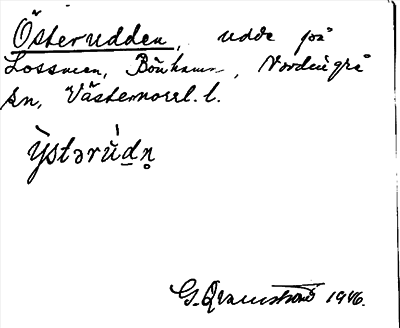 Österudden, udde på
Lossmen, Bönhamn, Nordingrå
sn, Västernorrl. l.
ỳstərúdn̥
G. Qvarnström 1946.